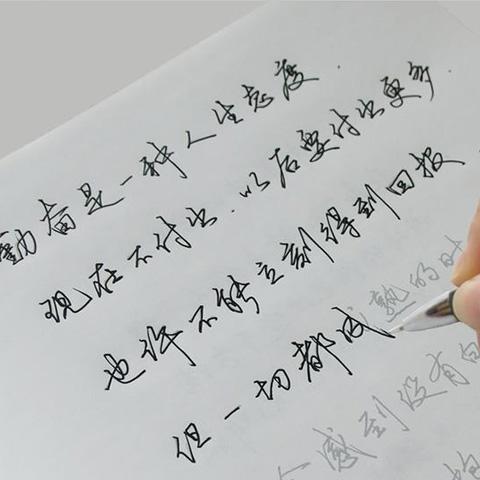 勤奋是一种人生态度.
现在不付出.以后要付出更多.
也许不能立刻得到回报
但一切都成熟的时
会感到没有白